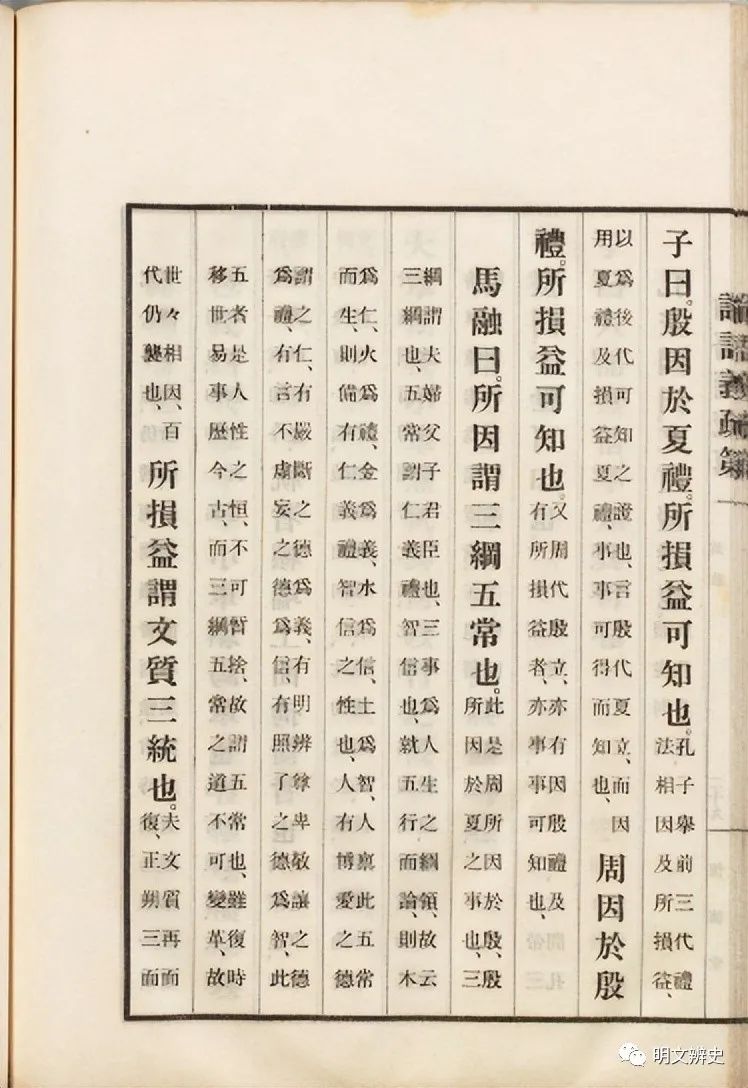 論語義疏第
子曰。殷因於夏禮。所損益可知也。孔子舉前三代禮法相因及所損益、
以爲後代可知之證也、言殷代夏立、而因用夏禮及損益夏禮、事事可得而知也、周因於殷
禮。所損益可知也。又周代殷立、亦有因殷禮及有所損益者、亦事事可知也、
馬融曰。所因謂三綱五常也。此是周所因於殷、殷所因於夏之事也、三
綱謂夫婦父子君臣也、三事爲人生之綱領、故云三綱也、五常謂仁義禮智信也、就五行而論、則木
爲仁、火爲禮、金爲義、水爲信、土爲智、人稟此五常而生、則備有仁義禮智信之性也、人有博愛之德
謂之仁、有嚴斷之德爲義、有明辨尊卑敬讓之德爲禮、有言不虛妄之德爲信、有照了之德爲智、此
五者是人性之恒、不可暫捨、故謂五常也、雖復時移世易事歷今古、而三綱五常之道不可變革、故
世々相因、百代仍襲也、所損益謂文質三統也。夫文質再面復、正朔三面
明文辨史